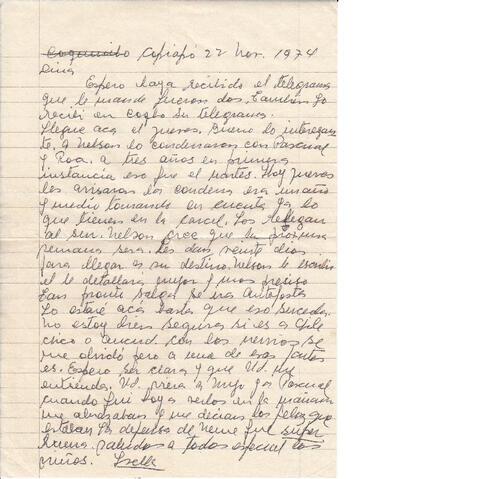 Coquimbo Copiapó 22 Nov. 1974
Espero haya recibido el telegrama
que le mande fueron dos. Tambien yo
recibi en coqbo su telegrama.
Llegue acá el jueves. Bueno lo interesan
te. a Nelson lo condenaron con Pascual
y Roa. a tres años en primera
instancia eso fue el martes. Hoy jueves
les avisaron la condena era un año
y medio tomando en cuenta ya lo
que tienen en la carcel. Los relegan
al sur. Nelson cree que la próxima
semana sera. Les dan veinte dias
para llegar a su destino. Nelson le escribira
el le detallara mejor y mas preciso
Tan pronto salga se va a
Yo estare acá hasta que eso suceda.
no estoy bien segura si es a Chile
chico o Ancud. con los nervios se
me olvidó pero a una de esas partes
es. Espero ser clara y que Ud. me
entienda. Ud. viera a Hugo y a Pascual
cuando fui hoy a verlos en la mañana
me abrazaban y me decian los felices que
estaban La defensa de fué super
buena. saludos a todos especial los
niños.